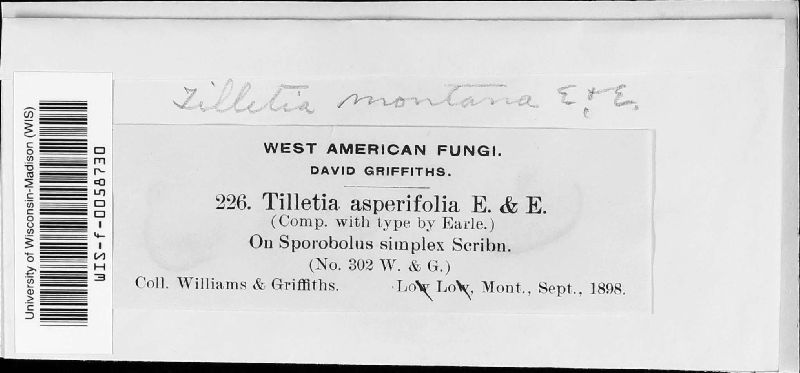 Tilletia montana E. & E.
WEST AMERICAN FUNGI.
DAVID GRIFFITHS.
226. Tilletia asperifolia E. & E.
(Comp. with type by Earle.)
On Sporobolus simplex Scribn.
(No. 302 W. & G.)
Coll. Williams & Griffiths. Low Low, Mont., Sept., 1898.
University of Wisconsin-Madison (WIS)
WIS-f-0058730